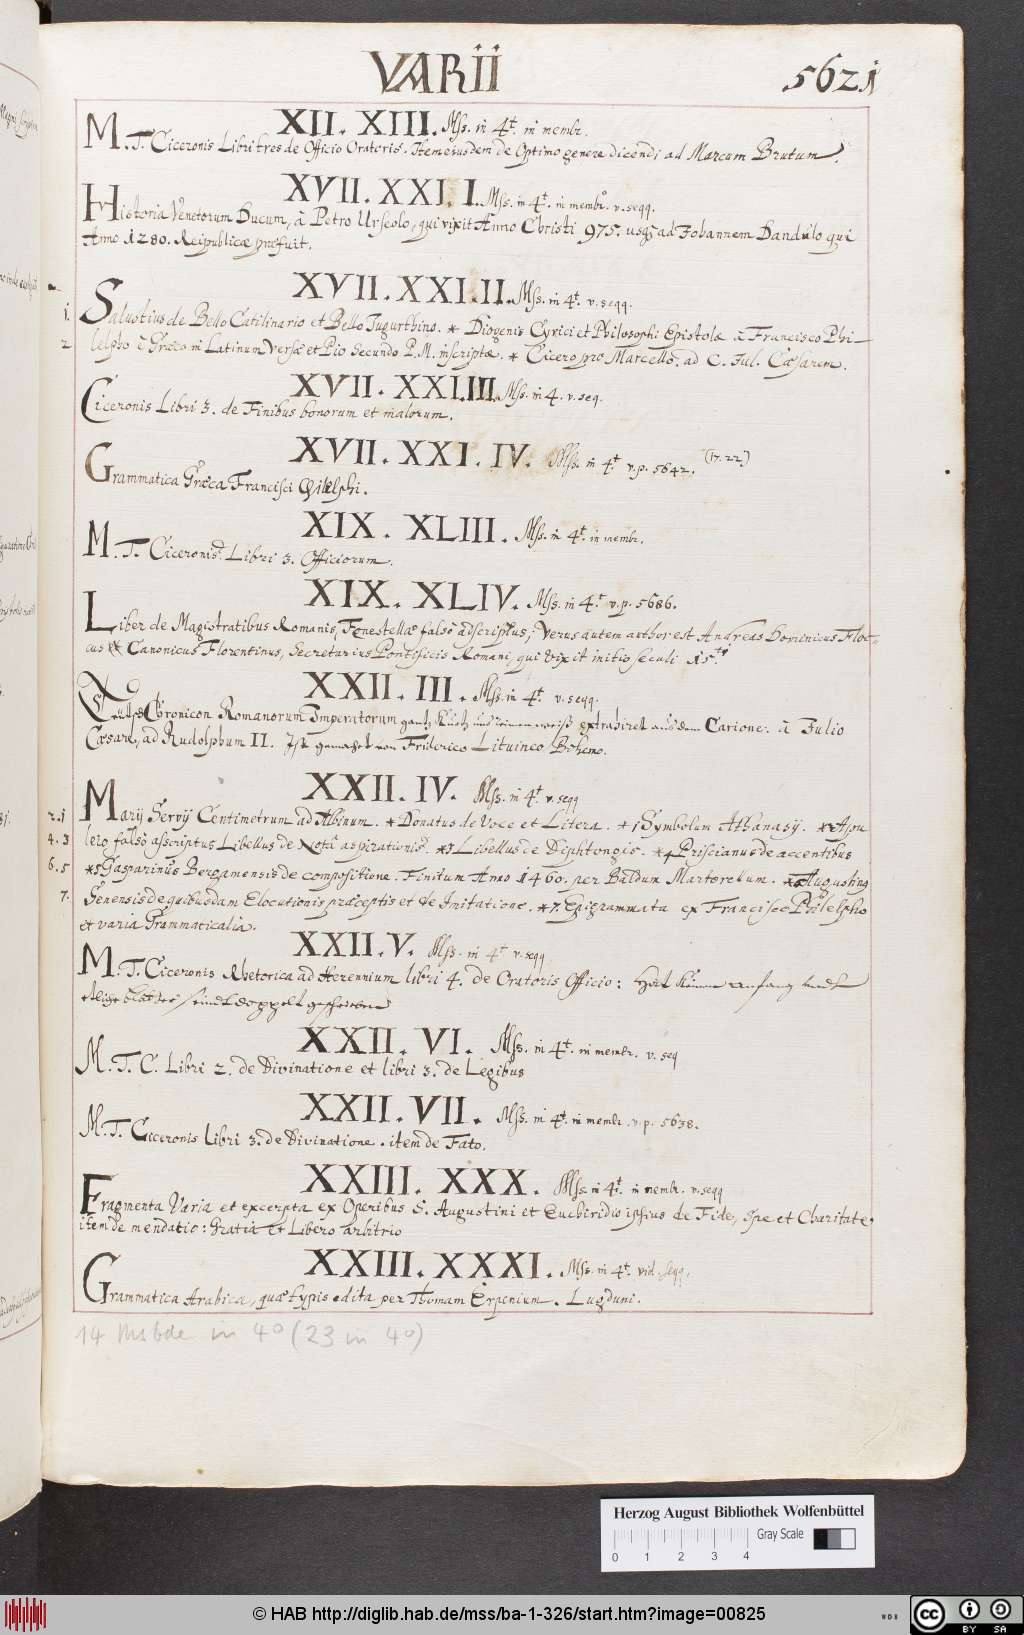 VARII
5621
XII. XIII. Mss. in 4t. in membr.
M. T. Ciceronis Libri tres de Officio Oratoris. Item eiusdem de Optimo genere dicendi ad Marcum Brutum.
XVII. XXI. I. Mss. in 4t. in membr. v. seqq.
Historia Venetorum Ducum, à Petro Urseolo, qui vixit Anno Christi 975. usq; ad Johannem Dandulo qui
Anno 1280. Reipublicæ præfuit.
XVII. XXI. II. Mss. in 4t. v. seqq.
1. Salustius de Bello Catilinario et Bello Jugurthino. * Diogenis Cynici et Philosophi Epistolæ à Francisco Phi-
2 lelpho è Græco in Latinum versæ et Pio Secundo P. M. inscriptæ. * Cicero pro Marcello, ad C. Jul. Cæsarem.
XVII. XXI. III. Mss. in 4. v. seq.
Ciceronis Libri 3. de Finibus bonorum et malorum.
XVII. XXI. IV. Mss. in 4t v. p. 5642. (17. 22.)
Grammatica Græca Francisci Philelphi.
XIX. XLIII. Mss. in 4t. in membr.
M. T. Ciceronis Libri 3. Officiorum.
XIX. XLIV. Mss. in 4t v. p. 5686.
Liber de Magistratibus Romanis, Fenestellæ falso adscriptus; Verus autem author est Andreas Dominicus Floc-
cus Canonicus Florentinus, Secretarius Pontificis Romani, qui vixit initio seculi 15ti
XXII. III. Mss. in 4t v. seqq.
Chronicon Romanorum Imperatorum gantz kurtz und reimenweiß extrahiret aus dem Carione: à Julio
Cæsare, ad Rudolphum II. Ist gemacht von Friderico Lituineo Bohemo.
XXII. IV. Mss. in 4t v. seqq
2. 1 Marij Servij Centimetrum ad Albinum. * Donatus de Voce et Litera. * 1 Symbolum Athanasij. *2 Apu
4. 3 leio falsò asscriptus Libellus de Nota aspirationis. *3 Libellus de Diphtongis. *4 Priscianus de accentibus
6. 5 *5 Gasparinus Bergamensis de compositione. Finitum Anno 1460. per Baldum Martorellum. *6 Augustinus
7. Senensis de quibusdam Elocutionis præceptis et de Imitatione. *7. Epigrammata ex Francisco Philelpho
et varia Grammaticalia.
XXII. V. Mss. in 4t v. seqq
M. T. Ciceronis Rhetorica ad Herennium libri 4. de Oratoris Officio: Hat keinen anfang undt
etliche blätter seindt doppelt geschrieben
XXII. VI. Mss. in 4t. in membr. v. seq
M. T. C. Libri 2. de Divinatione et libri 3. de Legibus
XXII. VII. Mss. in 4t. in membr. v. p. 5638.
M. T. Ciceronis Libri 3. de Divinatione. item de Fato.
XXIII. XXX. Mss. in 4t. in membr. v. seqq
Fragmenta Varia et excerpta ex Operibus S. Augustini et Enchiridio ipsius de Fide, Spe et Charitate
item de mendatio: Gratia et Libero arbitrio
XXIII. XXXI. Mss. in 4t. vid. seqq.
Grammatica Arabica, quæ typis edita per Thomam Erpenium. Lugduni.
14 Msbde in 4o (23 in 4o)
Herzog August Bibliothek Wolfenbüttel
Gray Scale
0 1 2 3 4
© HAB http://diglib.hab.de/mss/ba-1-326/start.htm?image=00825
WDB
cc BY SA